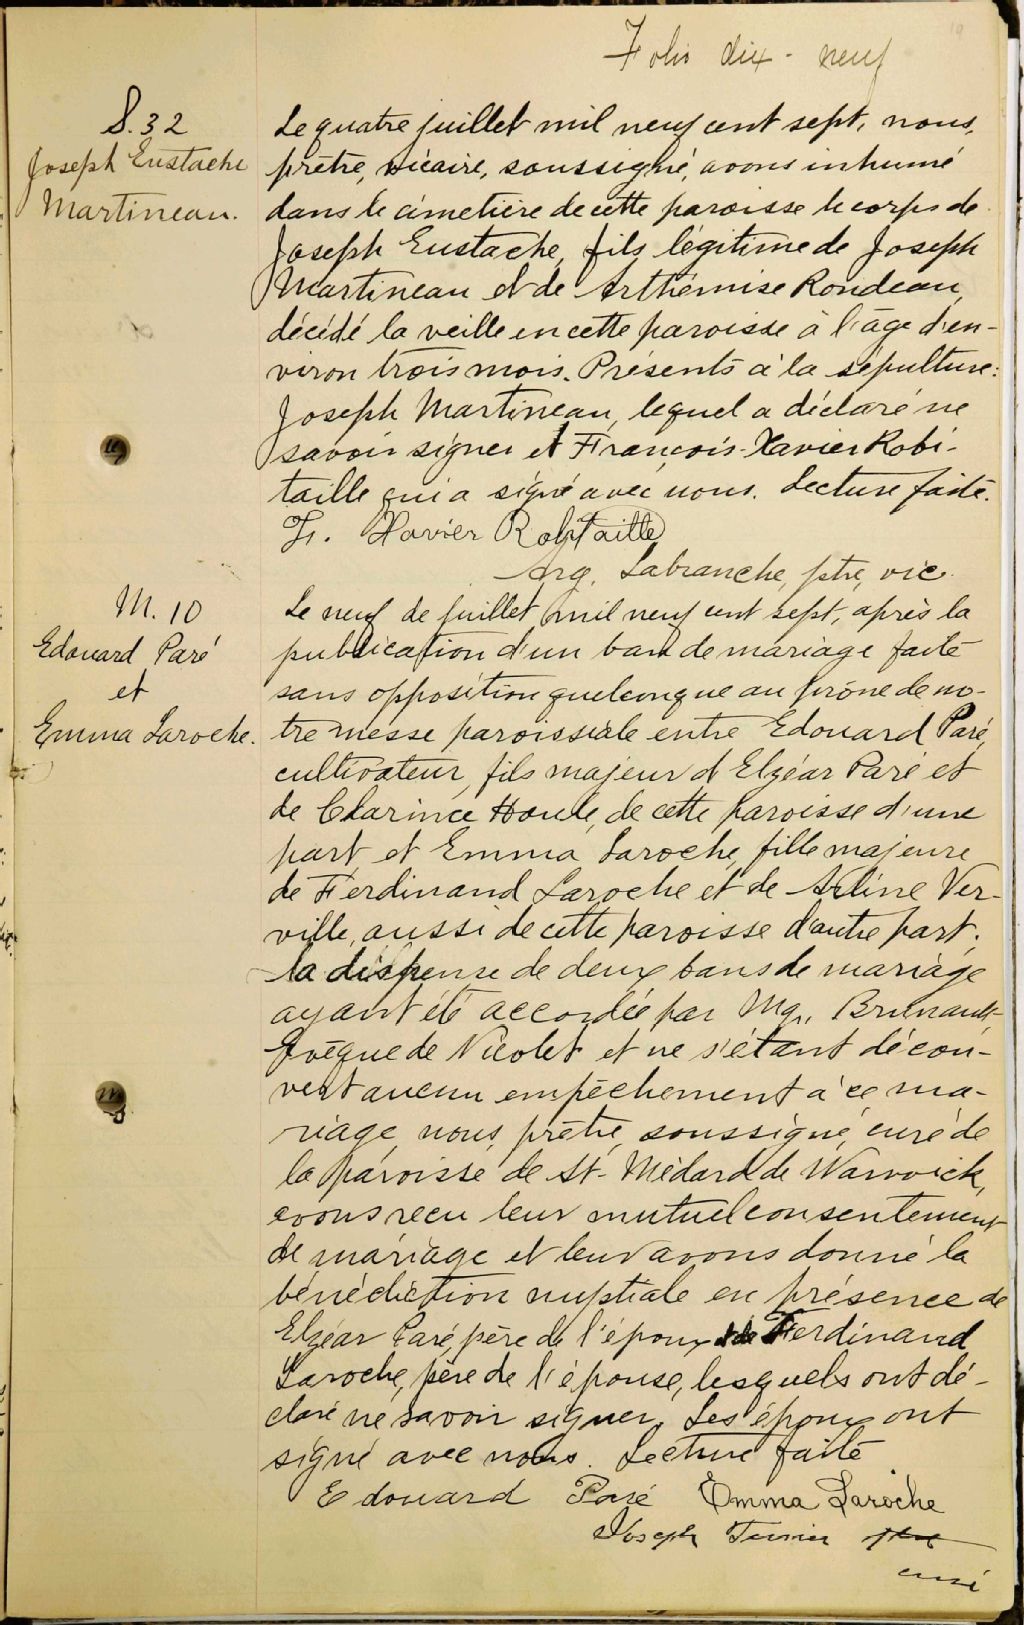 Folio dix-neuf
S. 32
Joseph Eustache
Martineau.
Le quatre juillet mil neuf cent sept, nous,
prêtre, vicaire, soussigné, avons inhumé
dans le cimetière de cette paroisse le corps de
Joseph Eustache, fils légitime de Joseph
Martineau et de Arthémise Rondeau,
décédé la veille en cette paroisse à l'âge d'en-
viron trois mois. Présents à la sépulture:
Joseph Martineau, lequel a déclaré ne
savoir signer et François-Xavier Robi-
taille qui a signé avec nous. Lecture faite.
Fr. Xavier Robitaille
Arg. Labranche, ptre, vic.
M. 10
Edouard Paré
et
Emma Laroche.
Le neuf de juillet mil neuf cent sept, après la
publication d'un ban de mariage faite
sans opposition quelconque au prône de no-
tre messe paroissiale entre Edouard Paré,
cultivateur, fils majeur d'Elzéar Paré et
de Clarince Houle, de cette paroisse d'une
part, et Emma Laroche, fille majeure
de Ferdinand Laroche et de Ver-
ville, aussi de cette paroisse d'autre part;
la dispense de deux bans de mariage
ayant été accordée par Mgr. Brunault
Evêque de Nicolet et ne s'étant décou-
vert aucun empêchement à ce ma-
riage, nous, prêtre, soussigné, curé de
la paroisse de St-Médard de Warwick,
avons reçu leur mutuel consentement
de mariage et leur avons donné la
bénédiction nuptiale en présence de
Elzéar Paré, père de l'époux Ferdinand
Laroche, père de l'épouse, lesquels ont dé-
claré ne savoir signer. Les époux ont
signé avec nous. Lecture faite
Edouard Paré Emma Laroche
Joseph Tessier ptre
curé